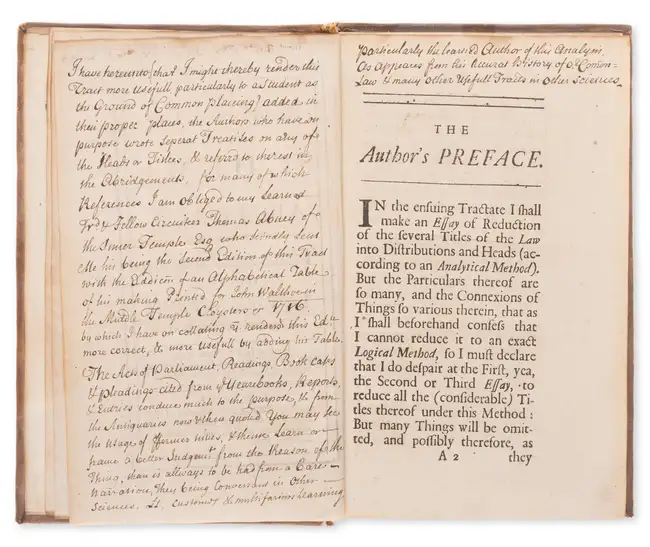 I have hereunto (that I might thereby render this
Tract more usefull particularly to a Student as
the Ground of Common placeing) added in
their proper places, the Authors who have on
purpose wrote Several Treatises on any of
the Heads or Titles, & referred to the rest in
the Abridgements, for many of which
References I am obliged to my Learned
Frd & Fellow Circuiteer Thomas Abney of
the Inner Temple Esq who kindly lent
Me his being the Second Edition of this Tract
with the Addicon of an Alphabetical Table
of his making Printed for John Walthoe in
the Middle Temple Cloysters Ao 1716
by which I have on collating it rendered this Edit
more correct, & more usefull by adding his Table.
The Acts of Parliament, Readings, Book cases
& pleadings cited from Yearbooks, Reports,
& Entries conduce much to the purpose, & from
the Antiquaries now & then quoted. You may see
the usage of former times, & thence Learn or
frame a better Judgmt from the Reason of the
Thing, than is allways to be had from a Bare
Narration, they being Conversant in Other
Sciences, customs & multifarious Learning
particularly the learned Author of this Analysis,
As Appeares from his Accurat History of ye Common
Law & many other Usefull Tracts in other Sciences.
THE
Author's PREFACE.
IN the ensuing Tractate I shall
make an Essay of Reduction
of the several Titles of the Law
into Distributions and Heads (ac-
cording to an Analytical Method).
But the Particulars thereof are
so many, and the Connexions of
Things so various therein, that as
I shall beforehand confess that
I cannot reduce it to an exact
Logical Method, so I must declare
that I do despair at the First, yea,
the Second or Third Essay, to
reduce all the (considerable) Ti-
tles thereof under this Method:
But many Things will be omit-
ted, and possibly therefore, as
A 2 they